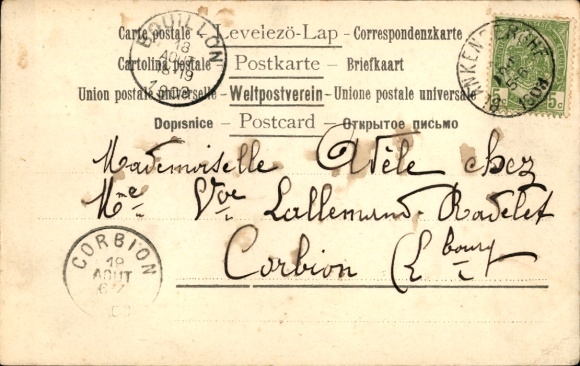 Carte postale Levelezö-Lap - Correspondenzkarte
Cartolina postale - Postkarte - Briefkaart
Union postale universelle - Weltpostverein - Unione postale universale
Dopisnice - Postcard - Открытое письмо
BOUILLON
18
AOUT
18-19
5 c 5 c
Mademoiselle Adèle chez
Me Vve Lallemand-Radelet
Corbion (Lbourg
CORBION
19
AOUT